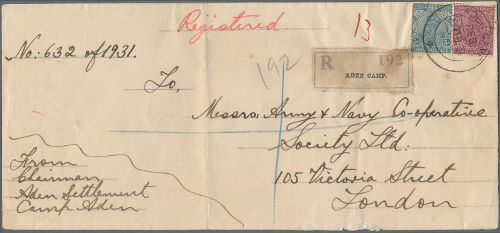 Registered
13
No: 632 of 1931.
192
R 192
ADEN CAMP.
To,
Messrs. Army & Navy Co-operative
Society Ltd:
105 Victoria Street
London
From
Chairman
Aden Settlement
Camp Aden